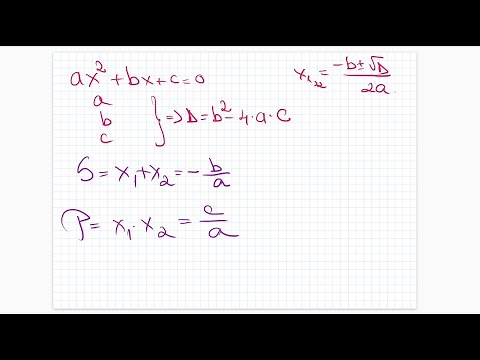 ax² + bx + c = 0
x₁,₂ = (-b ± √Δ) / 2a
a
b
c
} => Δ = b² - 4·a·c
S = x₁ + x₂ = - b/a
P = x₁ · x₂ = c/a